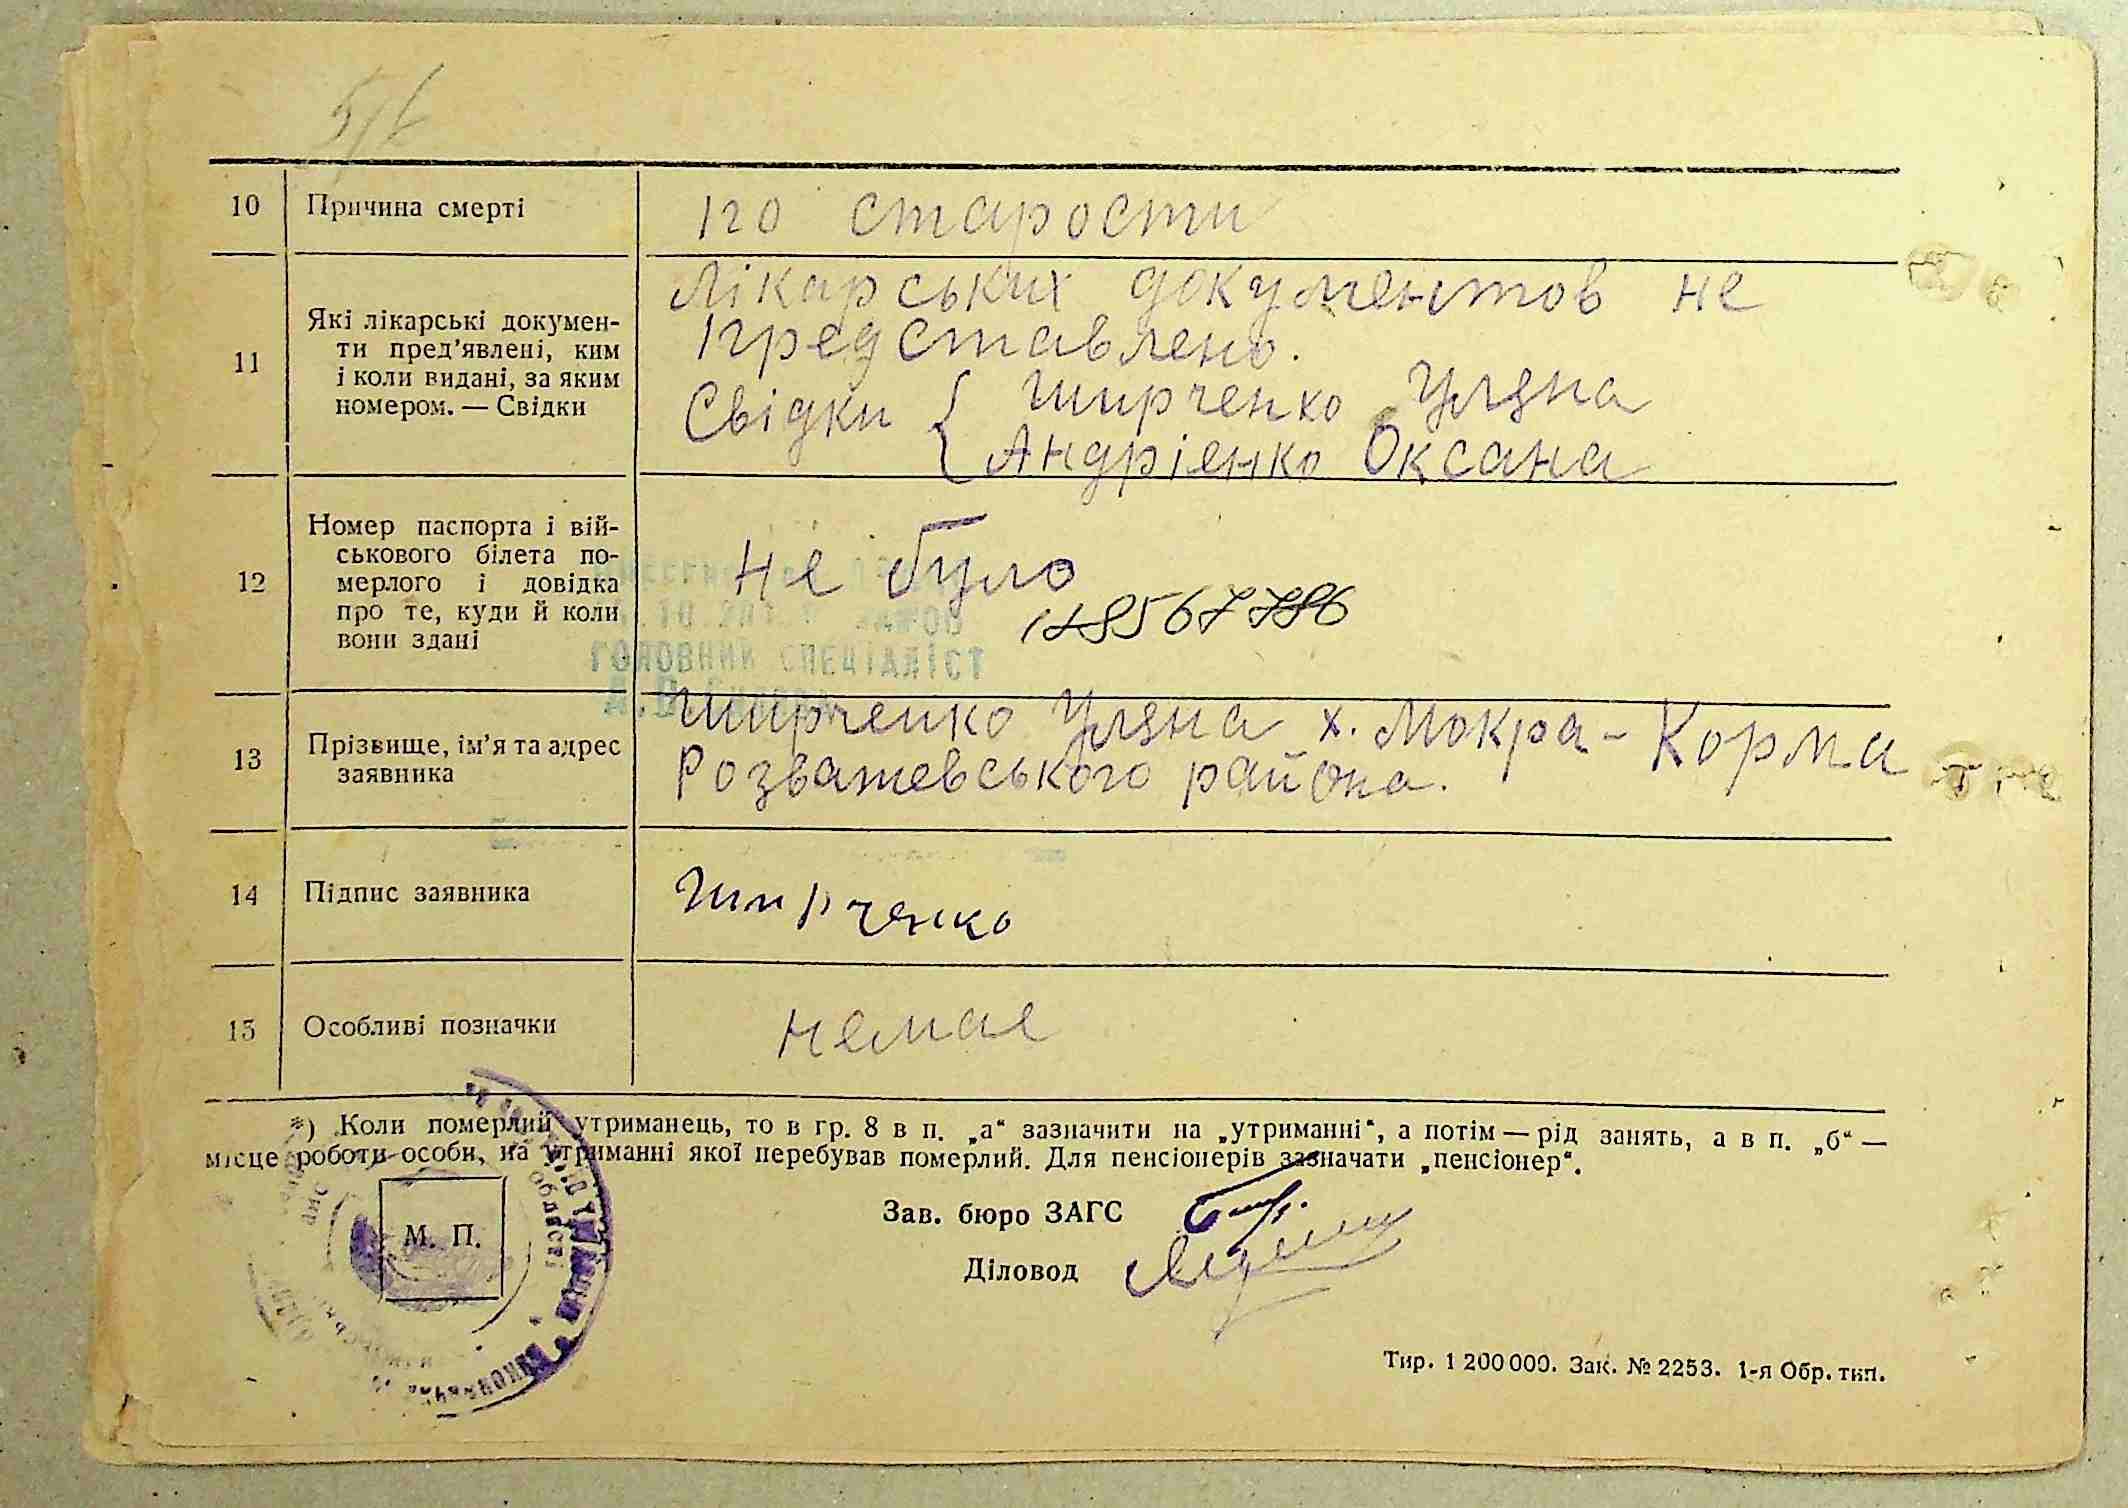 5/
10 Причина смерті по старости
Лікарських документов не
11 Які лікарські докумен-
ти пред’явлені, ким
і коли видані, за яким
номером. — Свідки
представлено.
Свідки { Ширченко Уляна
Андрієнко Оксана
12 Номер паспорта і вій-
ськового білета по-
мерлого і довідка
про те, куди й коли
вони здані
не було
178567786
ГОЛОВНИЙ СПЕЦІАЛІСТ
13 Прізвище, ім’я та адрес
заявника
Ширченко Уляна х. Мокра - Корма
Розважевського района.
14 Підпис заявника Ширченко
15 Особливі позначки немае
*) Коли померлий утриманець, то в гр. 8 в п. „а“ зазначити на „утриманні“, а потім — рід занять, а в п. „б“ —
місце роботи особи, на утриманні якої перебував померлий. Для пенсіонерів зазначати „пенсіонер“.
М. П.
області
Зав. бюро ЗАГС
Діловод
Тир. 1 200 000. Зак. № 2253. 1-я Обр. тип.